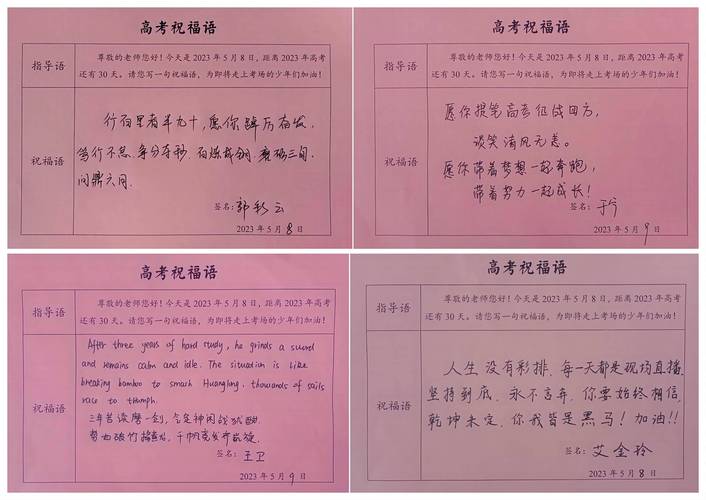 高考祝福语
指导语
尊敬的老师您好!今天是 2023 年 5 月 8 日,距离 2023 年高考
还有 30 天。请您写一句祝福语,为即将走上考场的少年们加油!
祝福语
行百里者半九十,愿你踔厉奋发,
笃行不怠,争分夺秒,百炼成钢,磨砺三旬,
问鼎六月.
签名:郭彩云
2023 年 5 月 8 日
高考祝福语
指导语
尊敬的老师您好!今天是 2023 年 5 月 8 日,距离 2023 年高考
还有 30 天。请您写一句祝福语,为即将走上考场的少年们加油!
祝福语
愿你提笔高考征战四方,
谈笑清风无恙。
愿你带着梦想一起奔跑,
带着努力一起成长!
签名:于
2023 年 5 月 9 日
高考祝福语
指导语
尊敬的老师您好!今天是 2023 年 5 月 8 日,距离 2023 年高考
还有 30 天。请您写一句祝福语,为即将走上考场的少年们加油!
祝福语
After three years of hard study, he grinds a sword
and remains calm and idle. The situation is like
breaking bamboo to smash Huanglong, thousands of sails
race to triumph.
三年苦读磨一剑,气定神闲战犹酣
势如破竹捣黄龙,千帆竞发齐凯旋.
签名:王卫
2023 年 5 月 9 日
高考祝福语
指导语
尊敬的老师您好!今天是 2023 年 5 月 8 日,距离 2023 年高考
还有 30 天。请您写一句祝福语,为即将走上考场的少年们加油!
祝福语
人生没有彩排,每一天都是现场直播,
坚持到底,永不言弃,你要始终相信,
乾坤未定,你我皆是黑马!加油!!
签名:艾金玲
2023 年 5 月 8 日